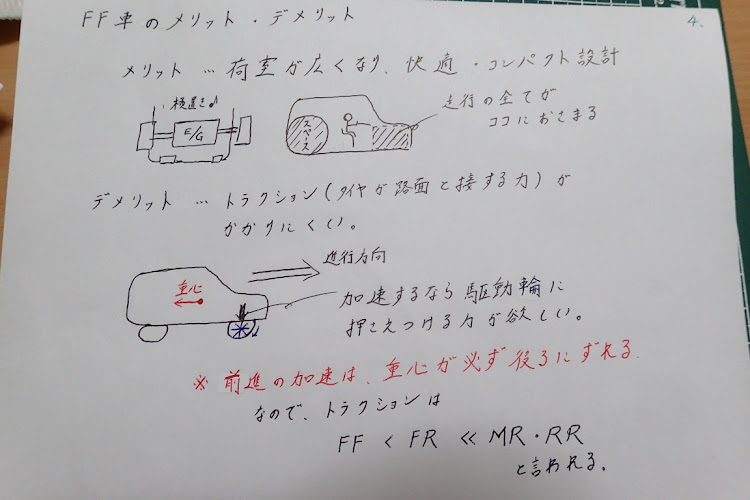 4.
FF車のメリット・デメリット
メリット…荷室が広くなり、快適・コンパクト設計
横置き♪
E/G
スペース
走行の全てが
ココにおさまる
デメリット…トラクション(タイヤが路面と接する力)が
かかりにくい。
進行方向
重心
加速するなら駆動輪に
押さえつける力が欲しい。
※前進の加速は、重心が必ず後ろにずれる.
なので、トラクションは
FF < FR ≪ MR・RR
と言われる。